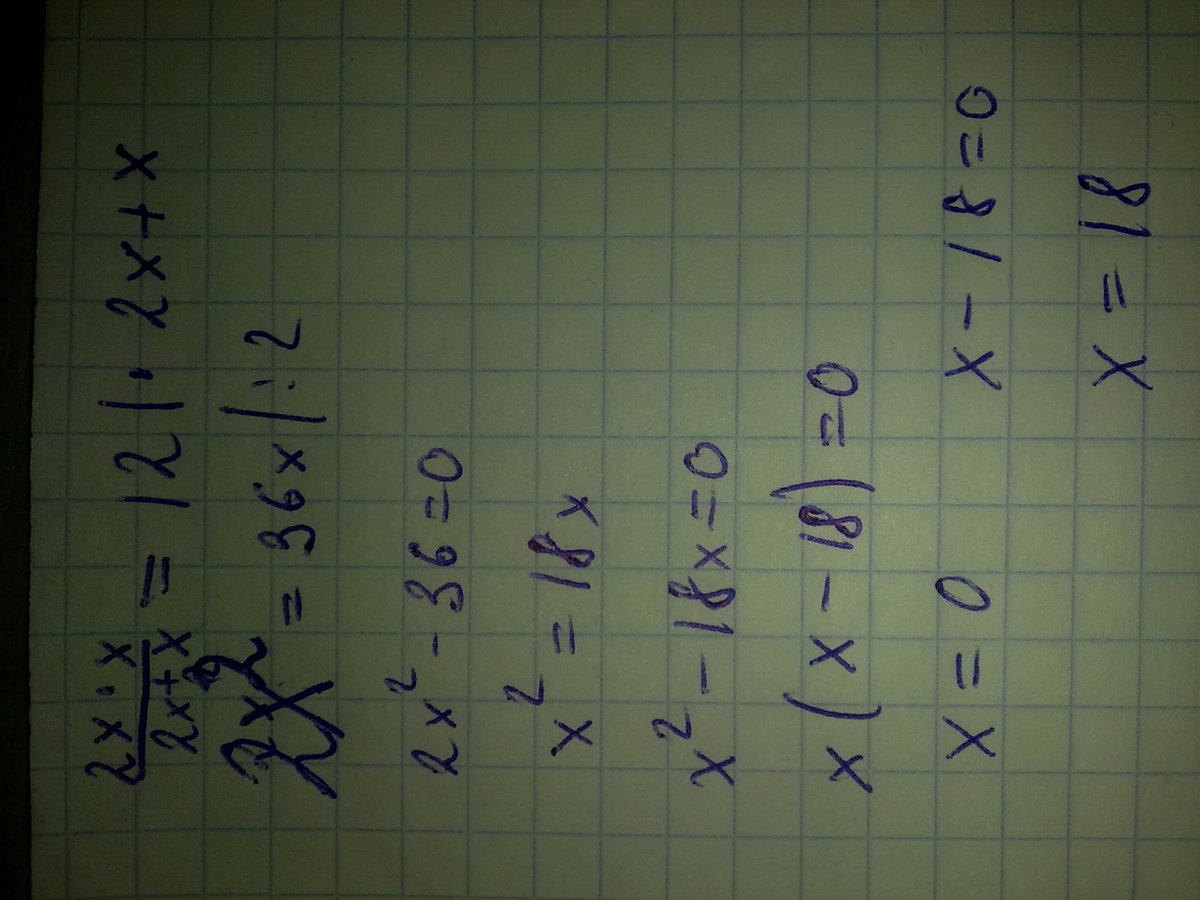 2x·x/2x+x = 12 |· 2x+x
2x² = 36x |:2
2x² - 36 = 0
x² = 18x
x² - 18x = 0
x(x - 18) = 0
x = 0 x - 18 = 0
x = 18